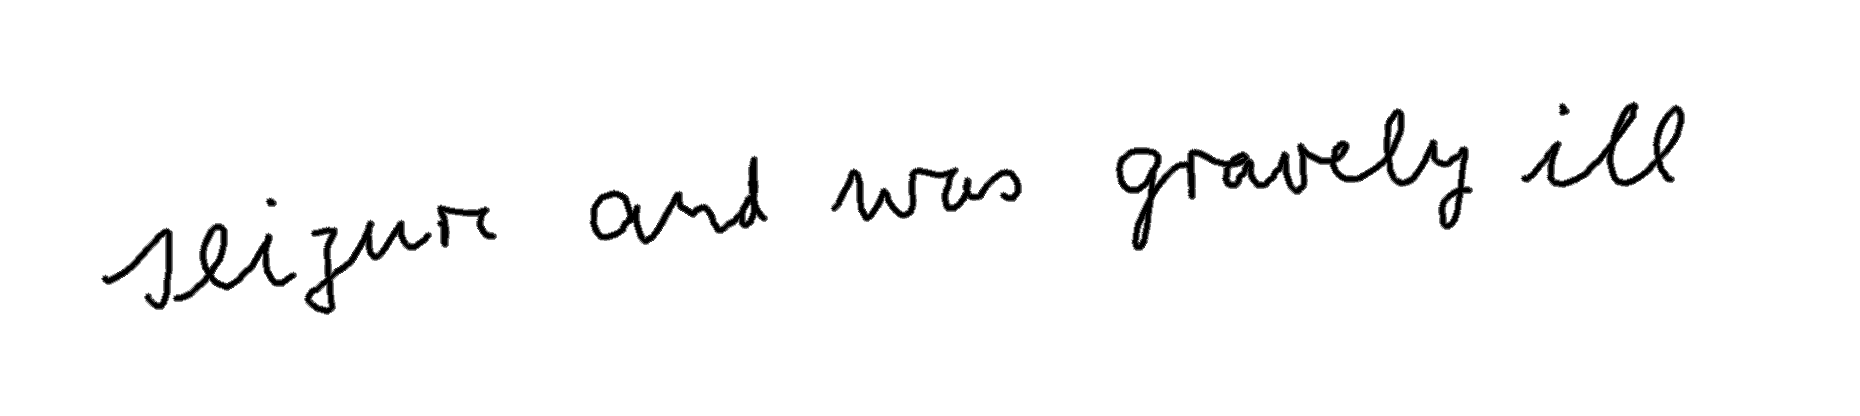 seizure and was gravely ill